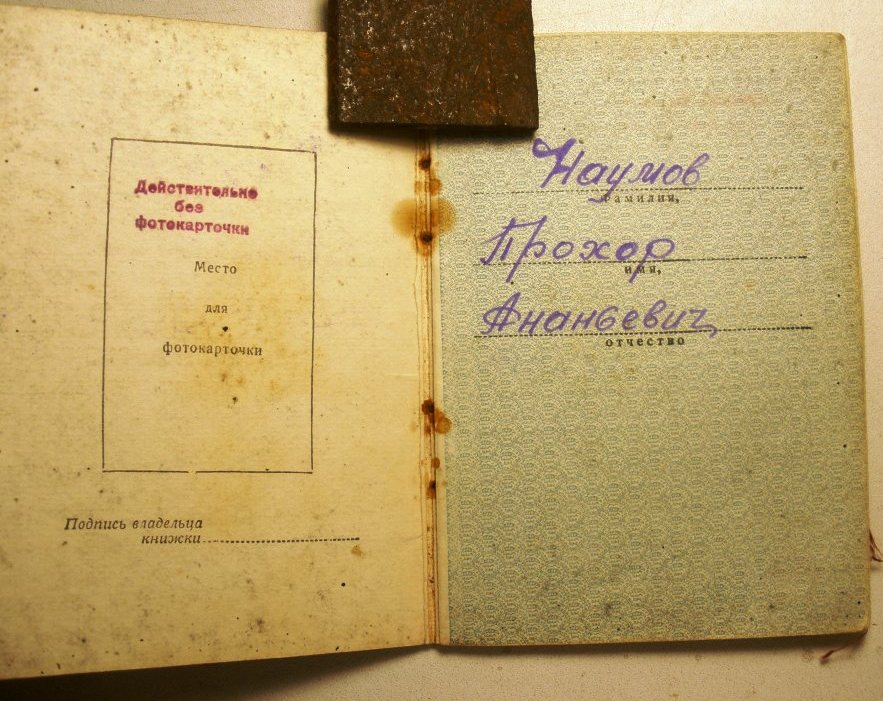 Действительно
без
фотокарточки
Место
для
фотокарточки
Подпись владельца
книжки
Наумов
фамилия,
Прохор
имя,
Ананьевич
отчество